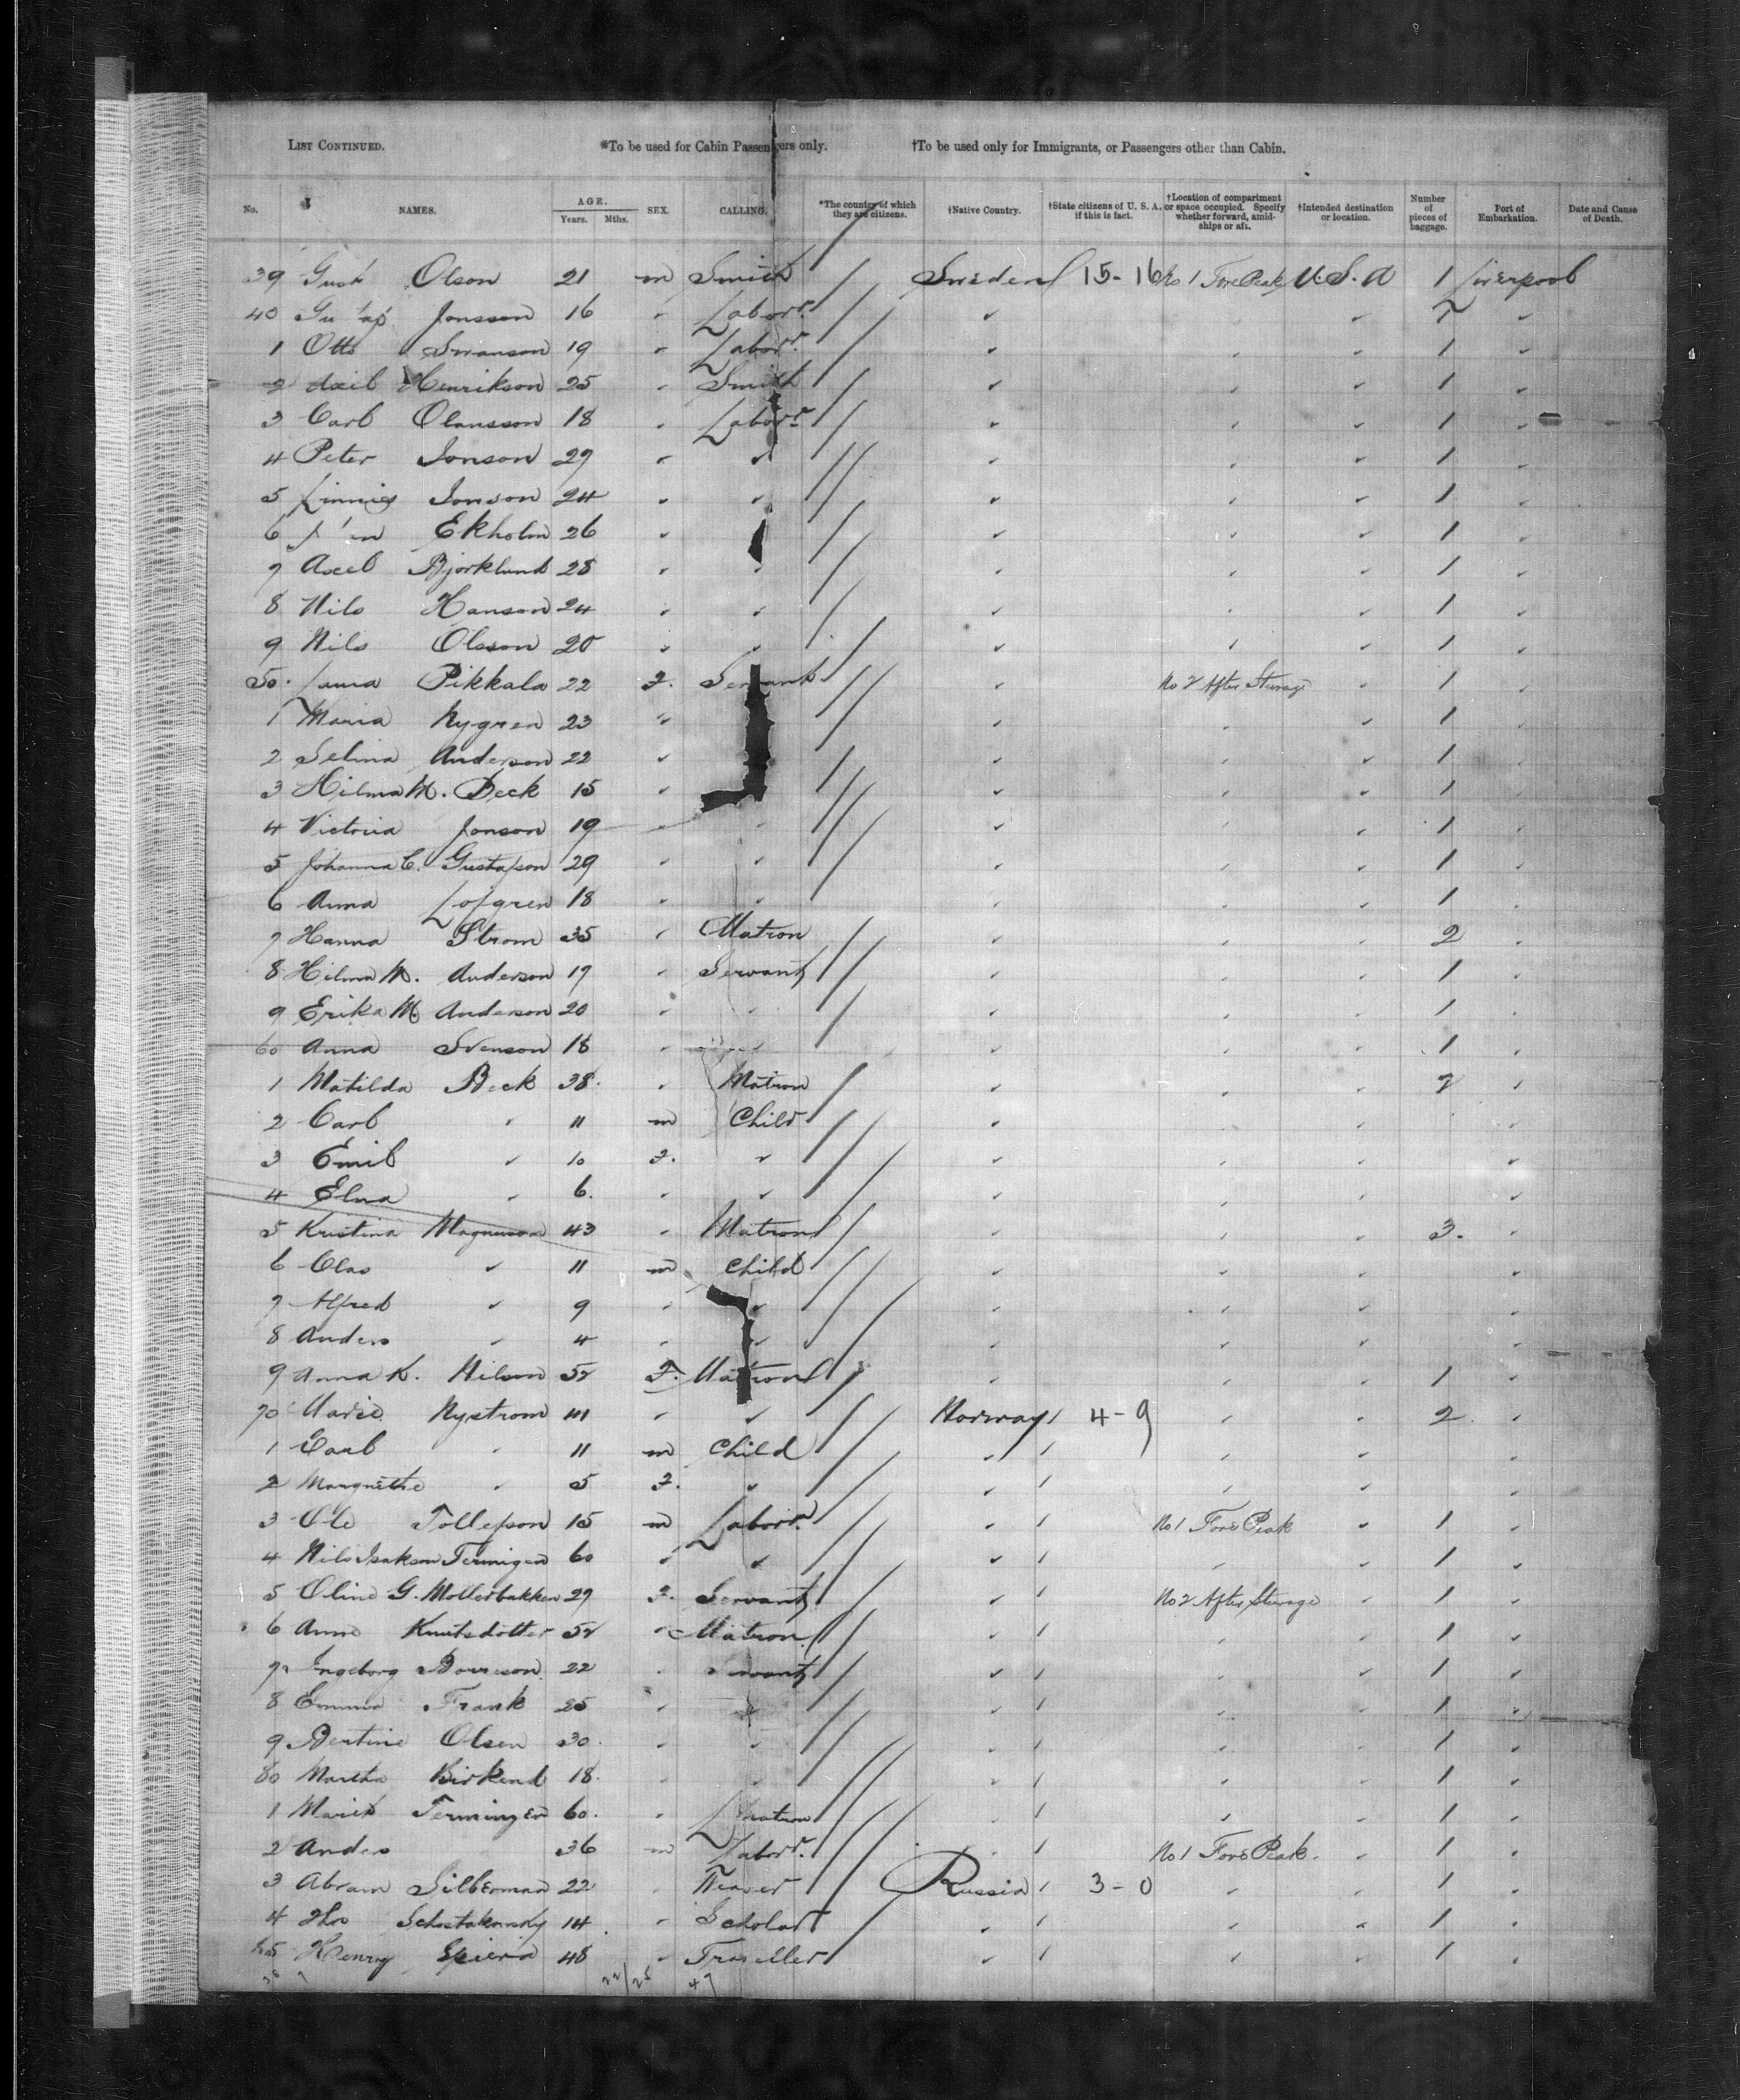 LIST CONTINUED. *To be used for Cabin Passengers only. †To be used only for Immigrants, or Passengers other than Cabin.
No. NAMES. AGE. Years. Mths. SEX. CALLING. *The country of which they are citizens. †Native Country. †State citizens of U. S. A. if this is fact. †Location of compartment or space occupied. Specify whether forward, amidships or aft. †Intended destination or location. Number of pieces of baggage. Port of Embarkation. Date and Cause of Death.
39 Gust Olson 21 m Smith Sweden 15-16 No 1 Fore Peak U.S.A 1 Liverpool
40 Jonsson 16 " Labor. " " "
1 Otto Swanson 19 " Labor. " " " 1 "
2 Axil Henrikson 25 " Smith " " " 1 "
3 Carl Olansson 18 " Labor. " " " 1 "
4 Peter Jonson 29 " " " " " 1 "
5 Jonson 24 " " " " " 1 "
6 Ekholm 26 " " " " 1 "
7 Axel Bjorklund 28 " " " " " 1 "
8 Nils Hanson 24 " " " " " 1 "
9 Nils Olsson 20 " " " " " 1 "
50. Laura Pikkala 22 F. Servant " No 2 After Sterage " 1 "
1 Maria Nygren 23 " " " " 1 "
2 Selina Anderson 22 " " " " 1 "
3 Hilma M. Beck 15 " " " " 1 "
4 Victoria Jonson 19 " " " " " 1 "
5 Johanna C. Gustafson 29 " " " " " 1 "
6 Anna Lofgren 18 " " " " " 1 "
7 Hanna Strom 35 " Matron " " " 2 "
8 Hilma M. Anderson 17 " Servant " " " 1 "
9 Erika M. Anderson 20 " " " " " 1 "
60 Anna Svenson 18 " " " " 1 "
1 Matilda Beck 38. " Matron " " " 2 "
2 Carl " 11 m Child " " "
3 Emil " 10 F. " " " " "
4 Elna " 6. " " " " " "
5 Kristina Magnuson 43 " Matron " " " 3. "
6 Clas " 11 m Child " " " "
7 Alfred " 9 " " " " " "
8 Anders " 4 " " " " " "
9 Anna K. Nilson 52 F. Matron " " " 1 "
70 Marie Nystrom 41 " " Norway 4-9 " " 2 "
1 Carl " 11 m Child " " " "
2 Margrethe " 5 F. " " " " "
3 Ole Tollefson 15 m Labor. " No 1 Fore Peak " 1 "
4 Nils Isakson 60 " " " " " 1 "
5 Oline G. Mollerbakken 29 F. Servant " No 2 After Sterage " 1 "
6 Anne Knutsdotter 52 " Matron " " " 1 "
7 Ingeborg 22 " Servant " " " 1 "
8 Emma Frank 25 " " " " " 1 "
9 Bertine Olsen 30. " " " " " 1 "
80 Martha Birkend 18. " " " " " 1 "
1 Marit Terningen 60. " Matron " " " 1 "
2 Anders 36 m Labor. " No 1 Fore Peak. " 1 "
3 Abram Silberman 22 " Weaver Russia 3-0 " " 1 "
4 14 " Scholar " " " 1 "
85 Henry 48 " Traveller " " " 1 "
22/25 47